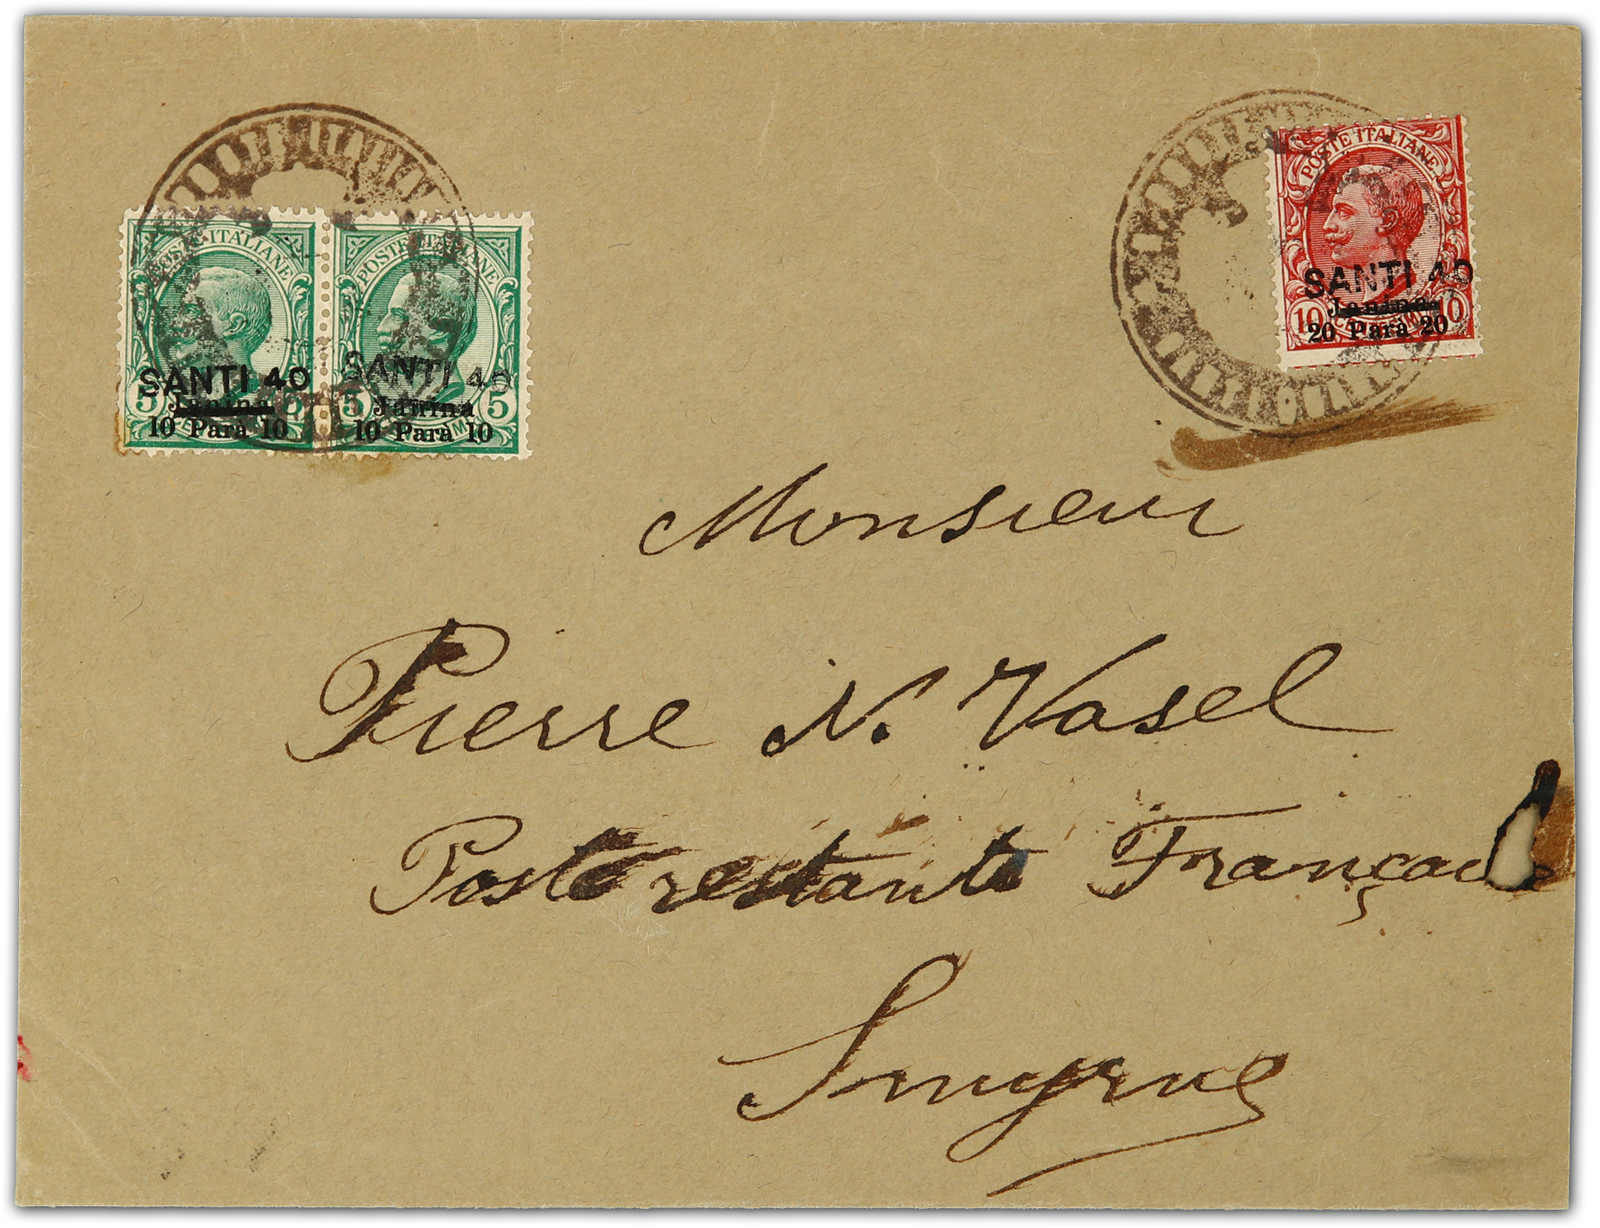 POSTE ITALIANE
SANTI 40
Janina
5 5
10 Para 10
POSTE ITALIANE
SANTI 40
Janina
5 5
10 Para 10
POSTE ITALIANE
SANTI 40
Janina
10 10
20 Para 20
Monsieur
Pierre N. Vasel
Poste restante Française
Smyrne